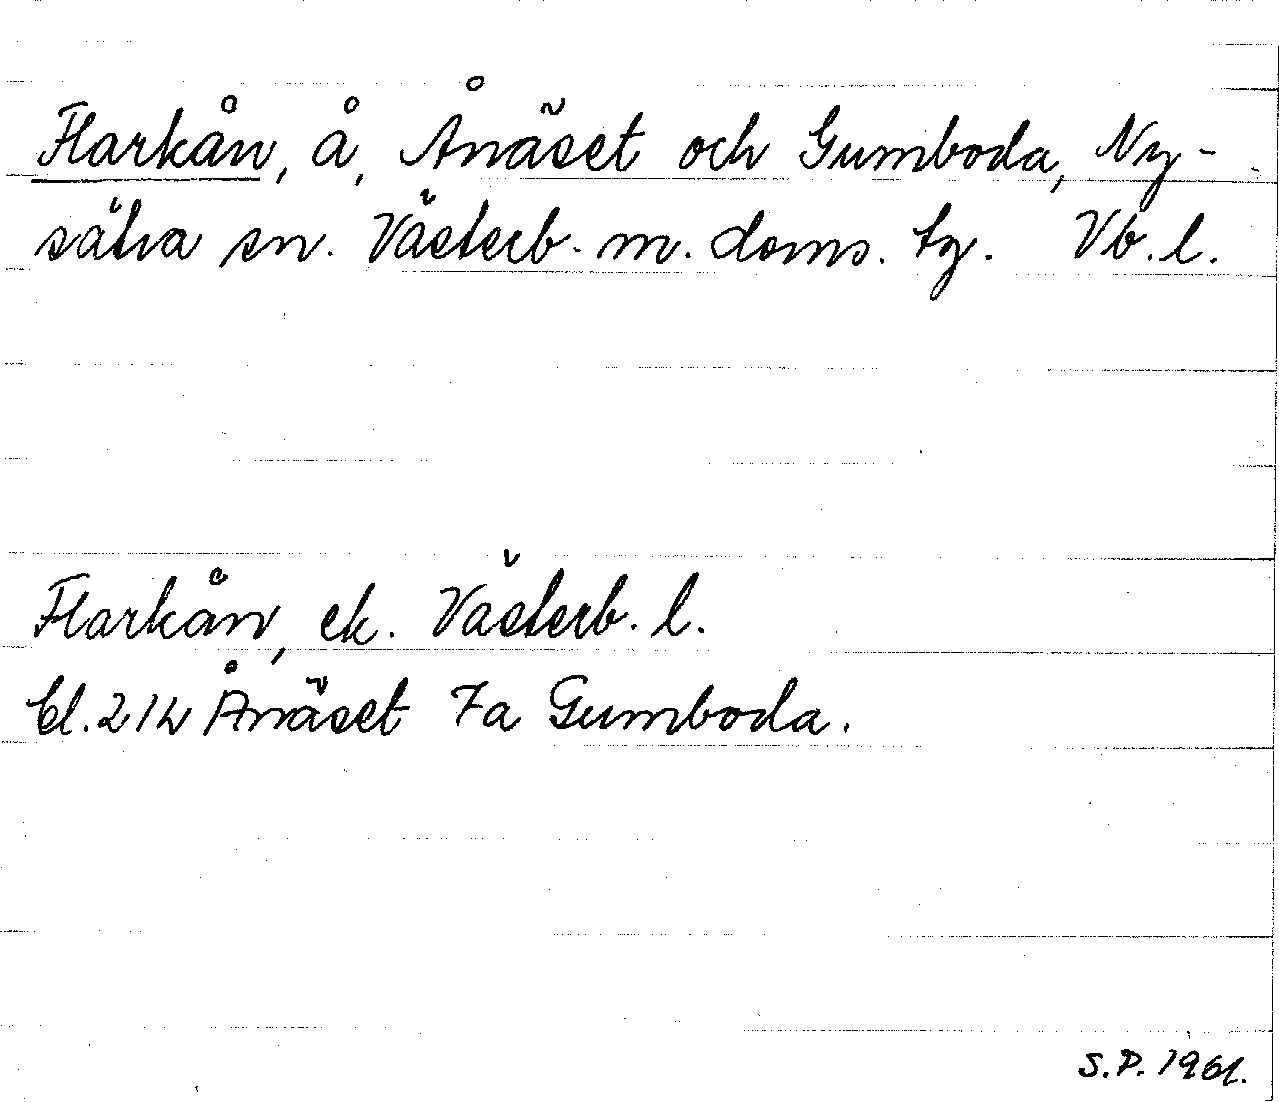 Flarkån, å, Ånäset och Gumboda, Ny-
sätra sn. Västerb. m. doms. tg. Vb. l.
Flarkån, ek. Västerb. l.
bl. 21h Ånäset 7a Gumboda.
S.P. 1961.